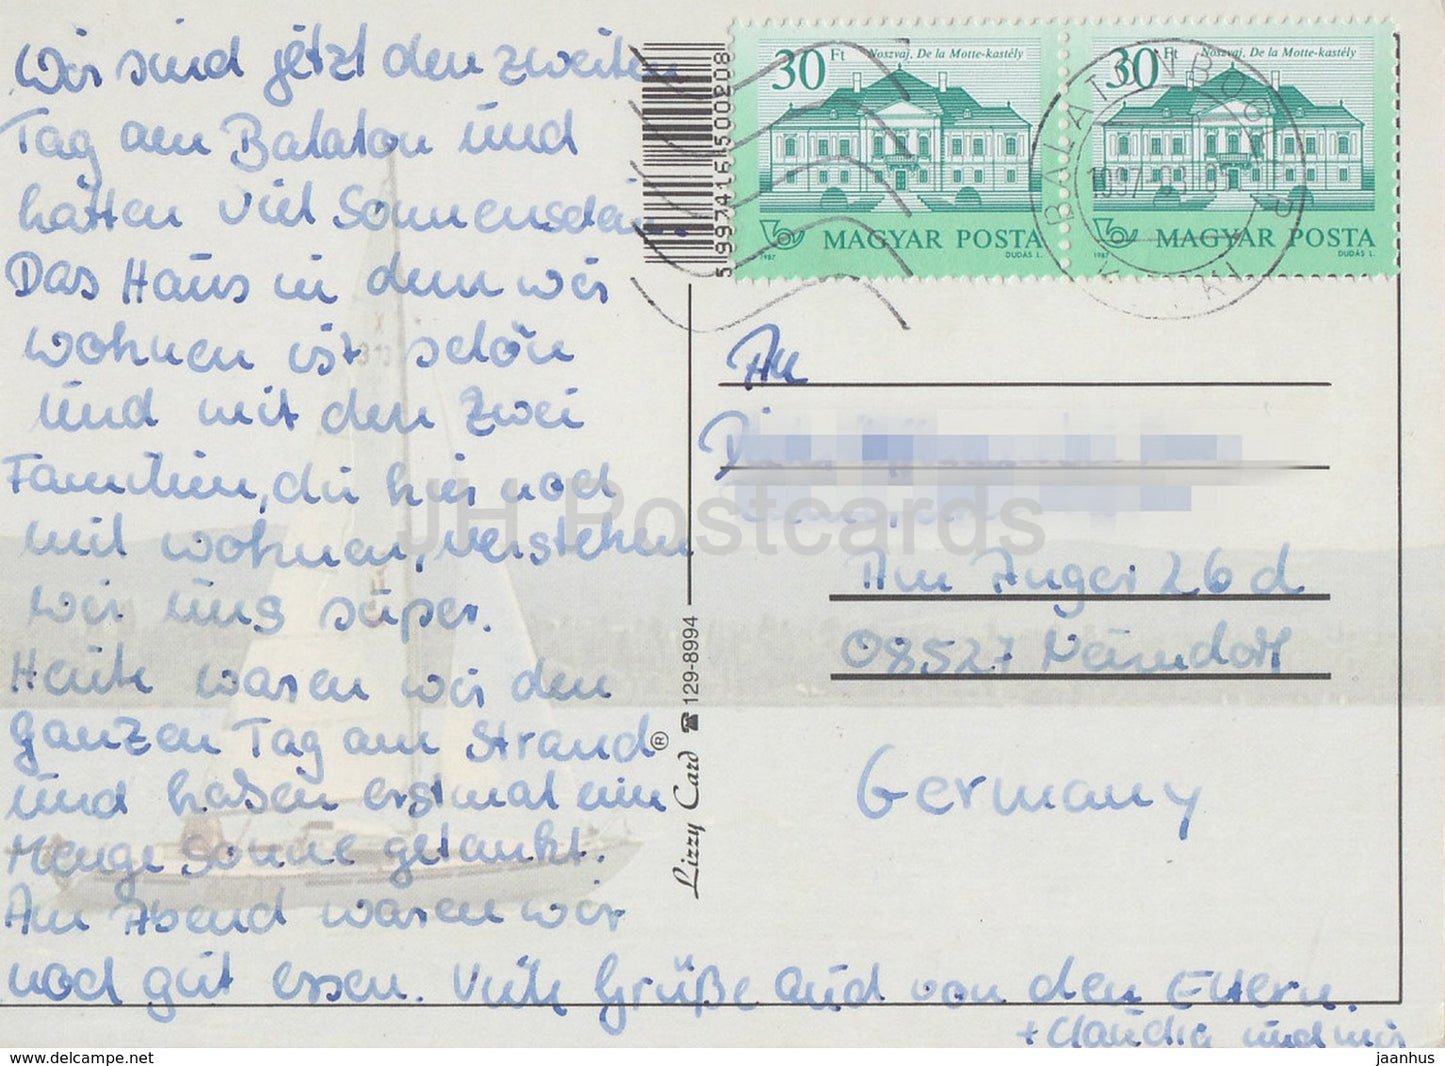 Wir sind jetzt den zweiten
Tag am Balaton und
hatten viel Sonnenschein.
Das Haus in dem wir
wohnen ist schön
und mit den zwei
Familien, die hier noch
mit wohnen, verstehen
wir uns super.
Heute waren wir den
ganzen Tag am Strand
und haben erstmal eine
Menge Sonne getankt.
Am Abend waren wir
noch gut essen. Viele Grüße auch von den Eltern.
+ Claudia und mir
5997416500208
30 Ft Noszvaj, De la Motte-kastély
MAGYAR POSTA
1987 DUDÁS L.
30 Ft Noszvaj, De la Motte-kastély
MAGYAR POSTA
1987 DUDÁS L.
BALATONBOGLÁR
An
Am Anger 26d
08527 Neundorf
Germany
Lizzy Card® ☎ 129-8994
JH Postcards
www.delcampe.net
jaanhus